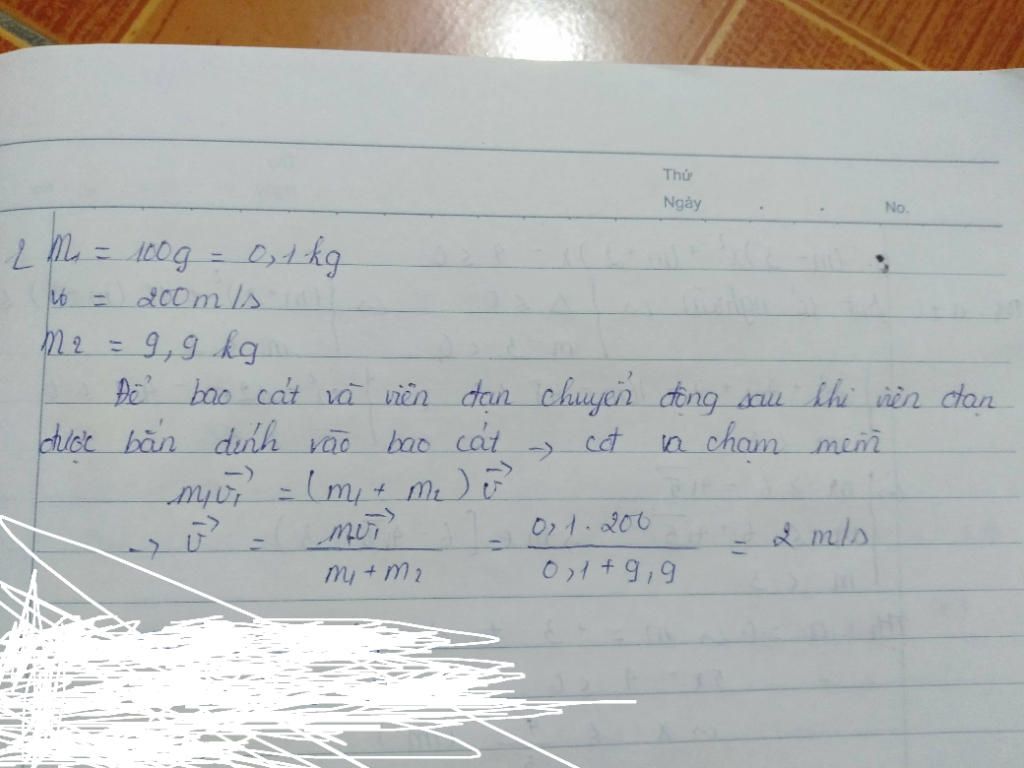 Thứ
Ngày . . No.
2 m₁ = 100g = 0,1 kg
v₁ = 200 m/s
m₂ = 9,9 kg
Để bao cát và viên đạn chuyển động sau khi viên đạn
được bắn dính vào bao cát → cđ va chạm mềm
m₁v₁⃗ = (m₁ + m₂) v⃗
→ v⃗ = m₁v₁⃗ / (m₁ + m₂) = 0,1 . 200 / (0,1 + 9,9) = 2 m/s